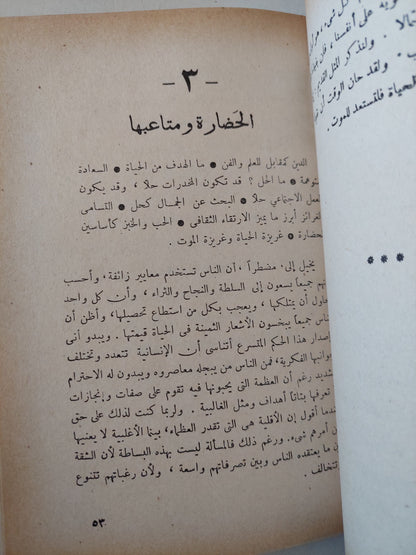 - ٣ -
الحَضارة ومتاعبها
الدين كمقابل للعلم والفن • ما الهدف من الحياة • السعادة
توهمة • ما الحل ؟ قد تكون المخدرات حلا ، وقد يكون
لعمل الاجتماعي حلا • البحث عن الجمال كحل • التسامى
الغرائز أبرز ما يميز الارتقاء الثقافى • الحب والخبز كأساسين
لحضارة • غريزة الحياة وغريزة الموت .
يخيل إلى، مضطراً ، أن الناس تستخدم معايير زائفة ، وأحسب
هم جميعاً يسعون إلى السلطة والنجاح والثراء ، وأن كل واحد
حاول أن يمتلكها ، ويعجب بكل من استطاع تحصيلها، وأظن أن
ناس جميعاً يبخسون الأشعار الثمينة فى الحياة قيمتها . ويبدو أنى
إصدار هذا الحكم المتسرع أتناسى أن الإنسانية تتعدد وتختلف
وانبها الفكرية، فمن الناس من يبجله معاصروه ويبدون له الاحترام
شديد رغم أن العظمة التى يحبونها فيه تقوم على صفات وإنجازات
تعرفها بتاتاً أهداف ومثل الغالبية . ولربما كنت لذلك على حق
ندما أقول إن الأقلية هى التى تقدر العظماء، بينما الأغلبية لا يعنيها
ن أمرهم شىء . ورغم ذلك فالمسألة ليست بهذه البساطة لأن الشقة
ن ما يعتقده الناس وبين تصرفاتهم واسعة ، ولأن رغباتهم تتنوع
تتخالف .
٥٣
ويه على أنفسنا ، فإن
ولنتذكر المثل القديم :
. ولقد حان الوقت أن
لحياة فلتستعد للموت .
***